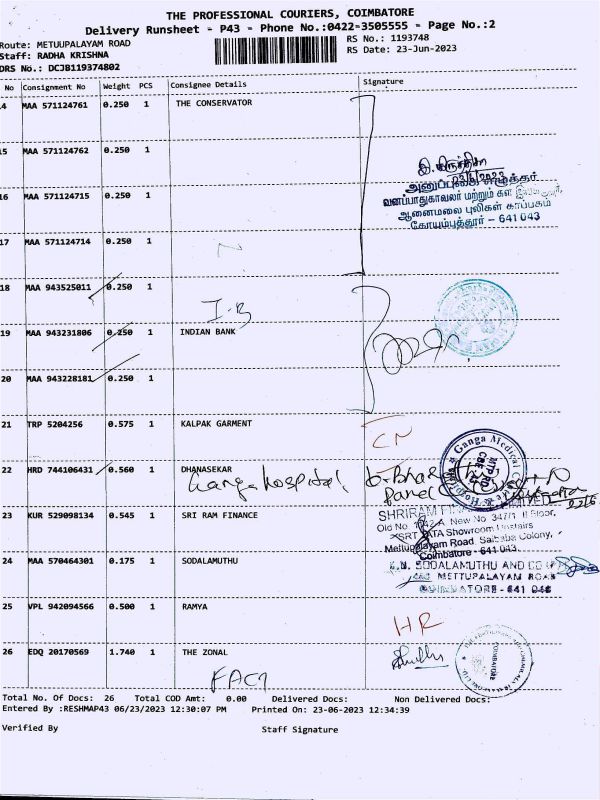 THE PROFESSIONAL COURIERS, COIMBATORE
Delivery Runsheet - P43 - Phone No.:0422-3505555 - Page No.:2
Route: METUUPALAYAM ROAD
RS No.: 1193748
Staff: RADHA KRISHNA
RS Date: 23-Jun-2023
DRS No.: DCJB119374802
No Consignment No Weight PCS Consignee Details Signature
14 MAA 571124761 0.250 1 THE CONSERVATOR
15 MAA 571124762 0.250 1
16 MAA 571124715 0.250 1
அனுப்புகை எழுத்தர்
வனப்பாதுகாவலர் மற்றும் கள
ஆனைமலை புலிகள் காப்பகம்
கோயம்புத்தூர் - 641 043
17 MAA 571124714 0.250 1
N
18 MAA 943525011 0.250 1
I-B
19 MAA 943231806 0.250 1 INDIAN BANK
20 MAA 943228181 0.250 1
21 TRP 5204256 0.575 1 KALPAK GARMENT
CN
Ganga Medical
22 HRD 744106431 0.560 1 DHANASEKAR
Ganga hospital,
23 KUR 529098134 0.545 1 SRI RAM FINANCE
SHRIRAM
Old No. A New No 347/1 II Floor,
SRT TATA Showroom Upstairs
Mettupalayam Road Saibaba Colony,
Coimbatore - 641 043.
24 MAA 570464301 0.175 1 SODALAMUTHU
SODALAMUTHU AND CO
METTUPALAYAM ROAD
COIMBATORE - 641 043
25 VPL 942094566 0.500 1 RAMYA
HR
26 EDQ 20170569 1.740 1 THE ZONAL
FACT
COIMBATORE
Total No. Of Docs: 26 Total COD Amt: 0.00 Delivered Docs: Non Delivered Docs:
Entered By :RESHMAP43 06/23/2023 12:30:07 PM Printed On: 23-06-2023 12:34:39
Verified By Staff Signature